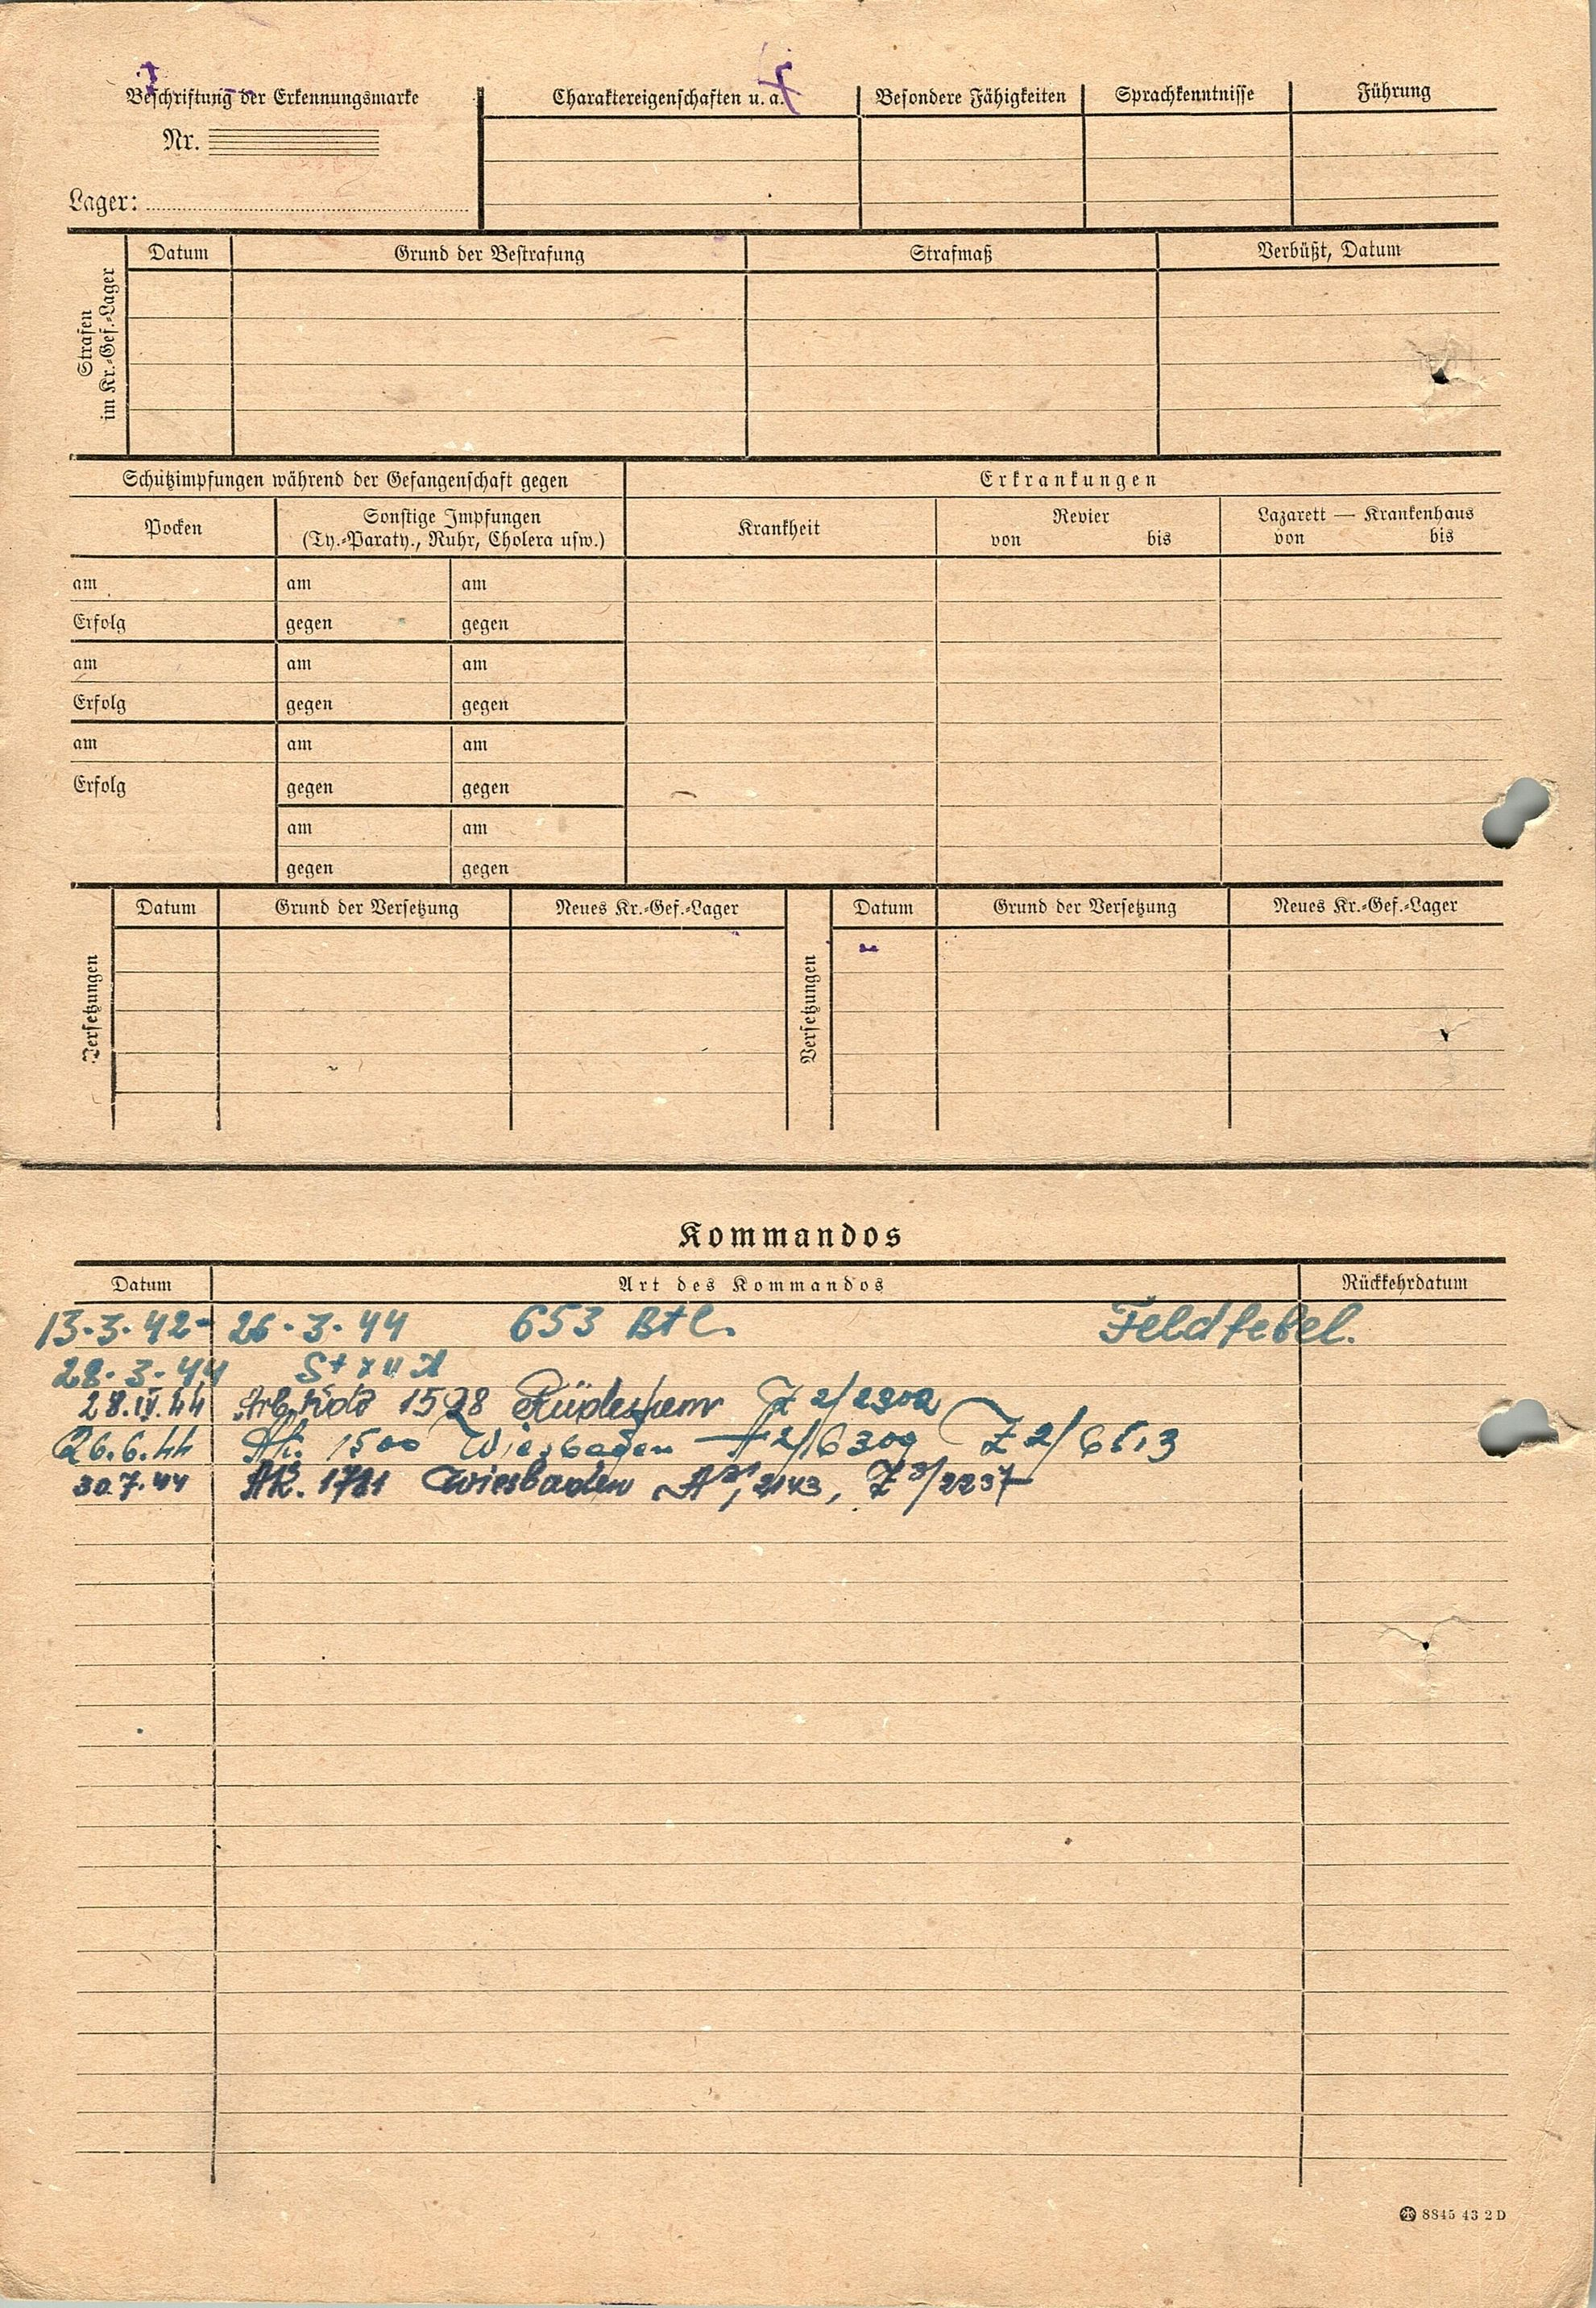 Beschriftung der Erkennungsmarke
Nr.
Lager:
Charaktereigenschaften u. a.
Besondere Fähigkeiten
Sprachkenntnisse
Führung
Strafen
im Kr.-Gef.-Lager
Datum
Grund der Bestrafung
Strafmaß
Verbüßt, Datum
Schutzimpfungen während der Gefangenschaft gegen
Erkrankungen
Pocken
Sonstige Impfungen
(Ty.-Paraty., Ruhr, Cholera usw.)
Krankheit
Revier
von bis
Lazarett — Krankenhaus
von bis
am am am
Erfolg gegen gegen
am am am
Erfolg gegen gegen
am am am
Erfolg gegen gegen
am am
gegen gegen
Versetzungen
Datum
Grund der Versetzung
Neues Kr.-Gef.-Lager
Versetzungen
Datum
Grund der Versetzung
Neues Kr.-Gef.-Lager
Kommandos
Datum Art des Kommandos Rückkehrdatum
13.3.42- 26.3.44 653 Btl. Feldfebel.
28.3.44 St XII A
28.IV.44 Arb. Kdo 1598 Rüdesheim Z 2/2302
26.6.44 Ak. 1500 Wiesbaden A 2/6309 Z 2/6613
30.7.44 AK. 1781 Wiesbaden A 3/2143, Z 3/2237
8845 43 2 D